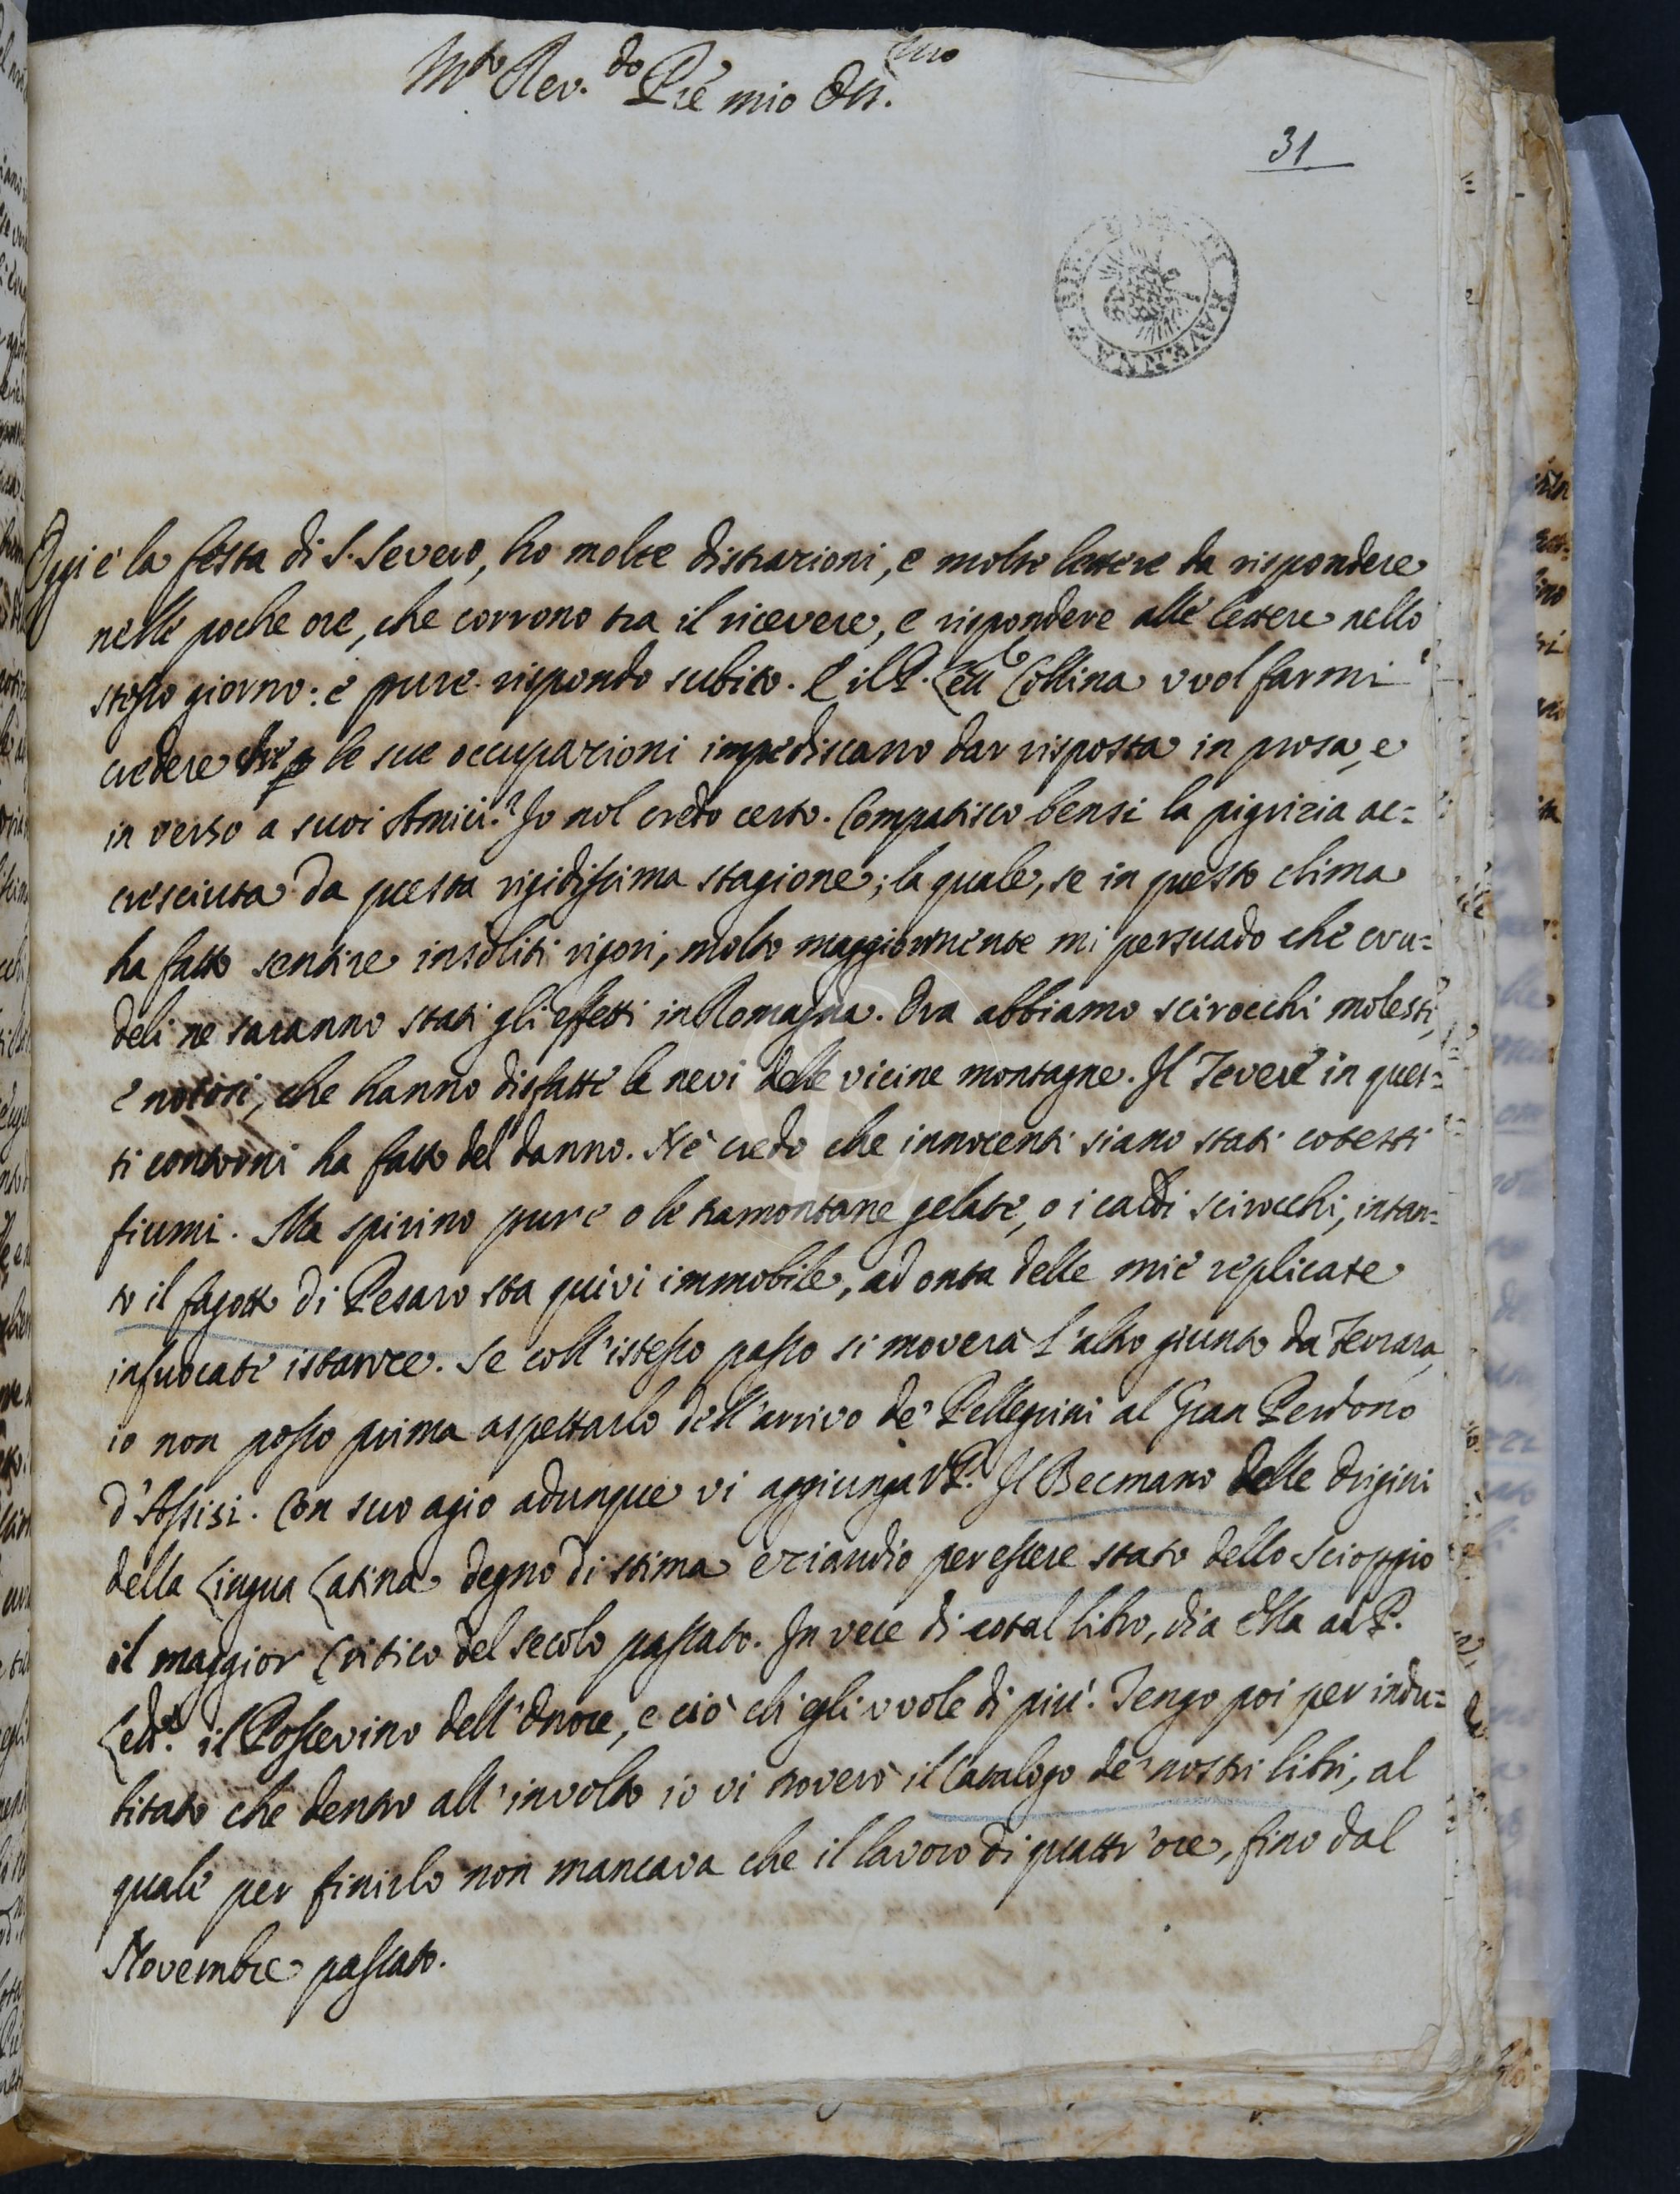 Mto Rev.do Pre mio Oss.mo
31
Oggi è la festa di S. Severo, ho molte distrazioni, e molte lettere da rispondere
nelle poche ore, che corrono tra il ricevere, e rispondere alle lettere nello
stesso giorno: e pure rispondo subito. E il P. Lett Collina vuol farmi
credere che le sue occupazioni impediscano dar risposta in prosa, e
in verso a suoi Amici? Io nol credo certo. Compatisco bensi la pigrizia ac=
cresciuta da questa rigidissima stagione; la quale, se in questo clima
ha fatto sentire insoliti rigori, molto maggiormente mi persuado che cru=
deli ne saranno stati gli effetti in Romagna. Ora abbiamo scirocchi molesti,
e che hanno disfatte le nevi delle vicine montagne. Il Tevere in ques=
ti contorni ha fatto del danno. Nè credo che innocenti siano stati cotesti
fiumi. Ma spirino pure o le tramontane gelate, o i caldi scirocchi, intan=
to il fagotto di Pesaro sta quivi immobile, ad onta delle mie replicate
infuocate istanze. Se coll'istesso passo si moverà l'altro giunto da Ferrara,
io non posso prima aspettarlo dell'arrivo de' Pellegrini al Gran Perdono
d'Assisi. Con suo agio adunque vi aggiunga V.P. Il Becmano delle Origini
della Lingua Latina degno di stima eziandio per essere stato dello Scioppio
il maggior Critico del secolo passato. In vece di cotal libro, dia Ella al P.
Lett.e il Possevino dell'Onore, e ciò ch'egli vuole di più. Tengo poi per indu=
bitato che dentro all'involto io vi troverò il Catalogo de' nostri libri, al
quale per finirlo non mancava che il lavoro di quattr'ore, fino dal
Novembre passato.